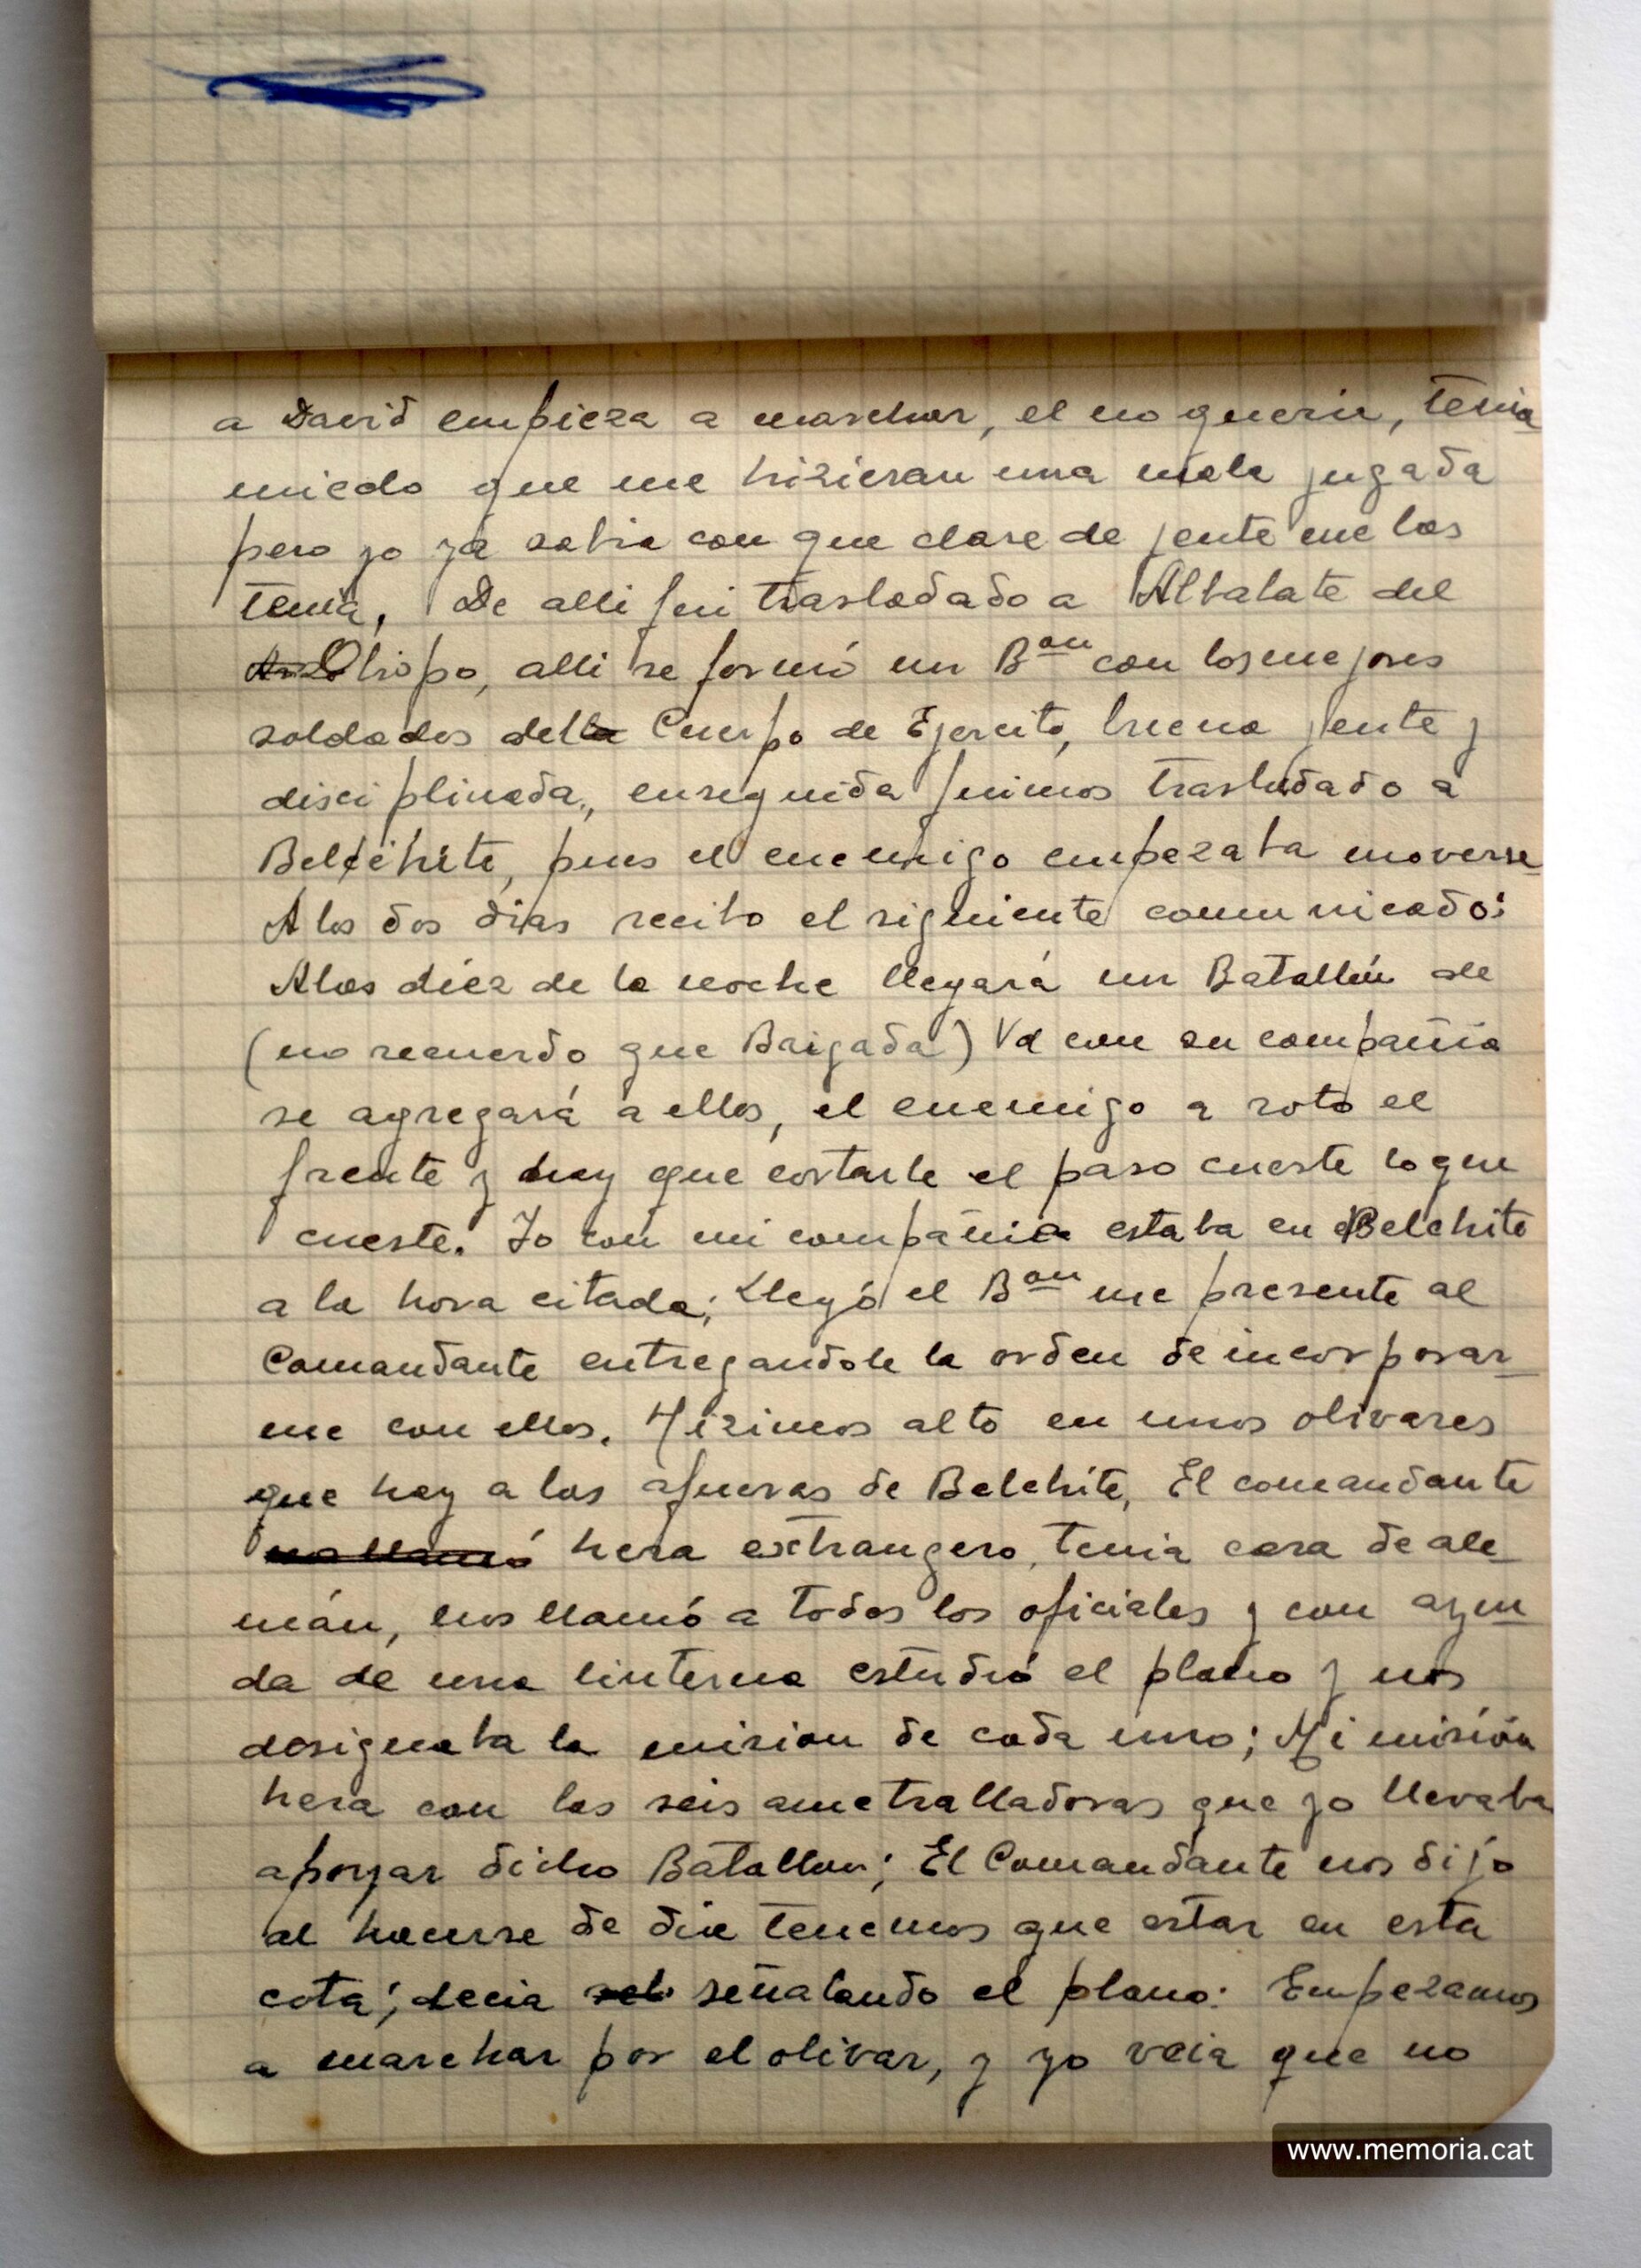 a David empieza a marchar, el no queria, tenia
miedo que me hizieran una mala jugada
pero yo ya sabia con que clase de jente me las
tenia, De alli fui trasladado a Albalate del
Obispo, alli se formó un Bon con los mejores
soldados del Cuerpo de Ejercito, buena jente y
disciplinada, enseguida fuimos trasladado a
Belchite, pues el enemigo empezaba moverse
A los dos dias recibo el siguiente comunicado:
A las diéz de la noche llegará un Batallón de
(no recuerdo que Baigada) Vd con su compañia
se agregará a ellos, el enemigo a roto el
frente y hay que cortarle el paso cueste lo que
cueste. Yo con mi compañia estaba en Belchite
a la hora citada; Llegó el Bon me presente al
Comandante entregandole la orden de incorporar
me con ellos. Hizimos alto en unos olivares
que hay a las afueras de Belchite, El comandante
hera extrangero, tenia cara de ale
mán, nos llamó a todos los oficiales y con ayu
da de una linterna estudió el plano y nos
designaba la mision de cada uno; Mi misión
hera con las seis ametralladoras que yo llevaba
apoyar dicho Batallon; El Comandante nos dijo
al hacerse de dia tenemos que estar en esta
cota; decia señalando el plano: Empezamos
a marchar por el olivar, y yo veia que no
www.memoria.cat